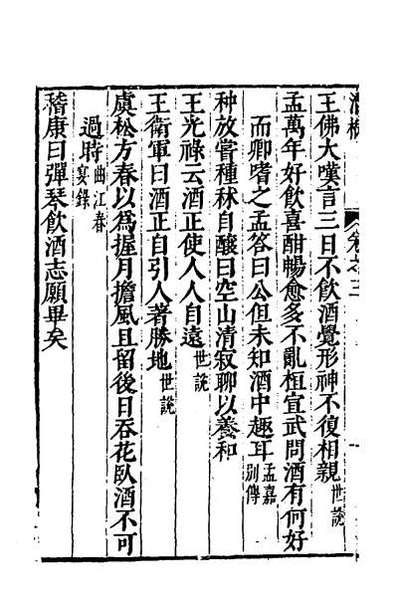 酒概
卷之三
王佛大嘆言三日不飲酒覺形神不復相親世說
孟萬年好飲喜酣暢愈多不亂桓宣武問酒有何好
而卿嗜之孟答曰公但未知酒中趣耳孟嘉別傳
种放嘗種秫自釀曰空山清寂聊以養和
王光祿云酒正使人人自遠世說
王衛軍曰酒正自引人著勝地世說
虞松方春以為握月擔風且留後日吞花臥酒不可
過時曲江春宴錄
嵇康曰彈琴飲酒志願畢矣